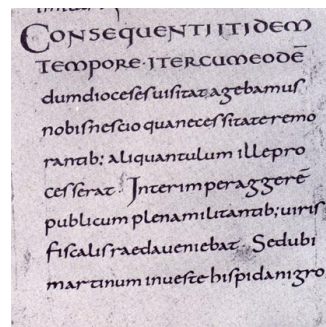 CONSEQUENTI ITIDEM
TEMPORE · ITER CUM EO DĒ
dum dioceses uisitat agebamus
nobis nescio qua necessitate remo
rantib; aliquantulum ille pro
cesserat. Interim per aggerē
publicum plena militantib; uiris
fiscalis raeda ueniebat. Sed ubi
martinum in ueste hispida nigro